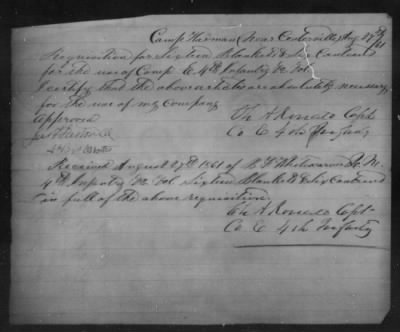 Camp Harman near Centerville Aug 27th /61
Requisition for Sixteen Blankets & Six Canteens
for the use of Comp E. 4th Infantry Va Vol
I certify that the above articles are absolutely necessary
for the use of my Company
Approved
Ch A Ronald Capt
Co E 4th Infanty
Received August 27th 1861 of Q. M.
4th Infantry Va Vol Sixteen Blankets & six Canteens
in full of the above requisition.
Ch A Ronald Capt
Co E 4th Infanty